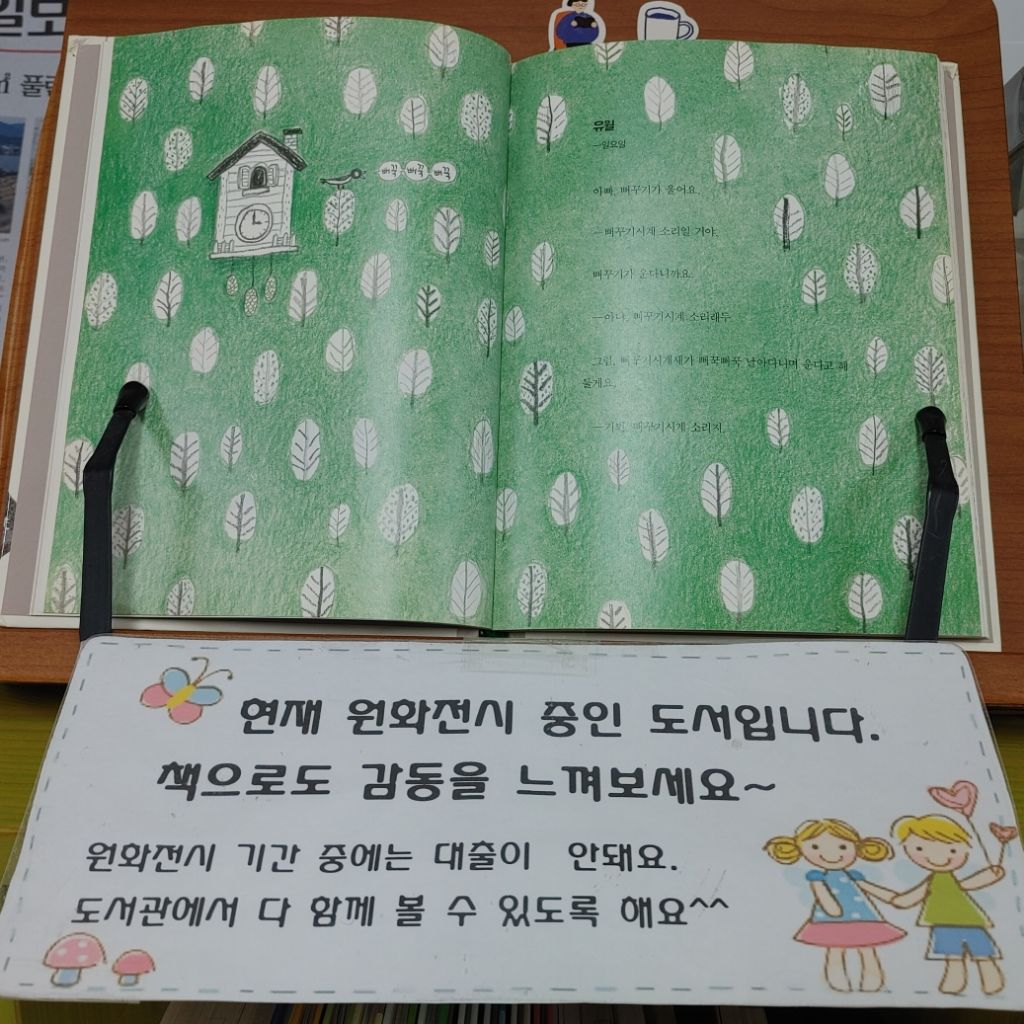 일보
풀
뻐꾹 뻐꾹 뻐꾹
유월
—일요일
아빠, 뻐꾸기가 울어요.
—뻐꾸기시계 소리일 거야.
뻐꾸기가 운다니까요.
—아냐, 뻐꾸기시계 소리래두.
그럼, 뻐꾸기시계새가 뻐꾹뻐꾹 날아다니며 운다고 해
둘게요.
뻐꾸기시계 소리지.
현재 원화전시 중인 도서입니다.
책으로도 감동을 느껴보세요~
원화전시 기간 중에는 대출이 안돼요.
도서관에서 다 함께 볼 수 있도록 해요^^